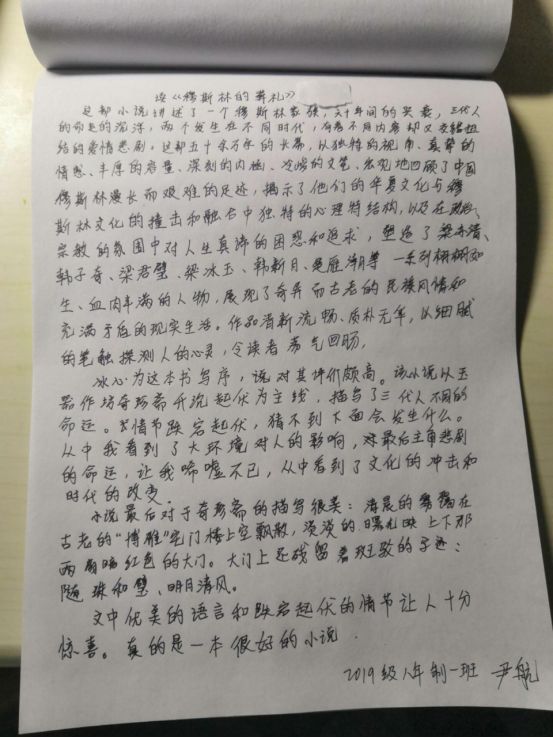 读《穆斯林的葬礼》
这部小说讲述了一个穆斯林家族，六十年间的兴衰，三代人
的命运的沉浮，两个发生在不同时代，有着不同内容却又交错扭
结的爱情悲剧。这部五十余万字的长篇，以独特的视角、真挚的
情感、丰厚的容量、深刻的内涵、冷峻的文笔、宏观地回顾了中国
穆斯林漫长而艰难的足迹，揭示了他们的华夏文化与穆
斯林文化的撞击和融合中独特的心理特结构，以及在政治、
宗教的氛围中对人生真谛的困惑和追求，塑造了梁亦清、
韩子奇、梁君璧、梁冰玉、韩新月、楚雁潮等一系列栩栩如
生、血肉丰满的人物，展现了奇异而古老的民族风情和
充满矛盾的现实生活。作品清新流畅、质朴无华，以细腻
的笔触探测人的心灵，令读者荡气回肠。
冰心为这本书写序，说对其评价颇高。该小说以玉
器作坊奇珍斋沉起伏为主线，描写了三代人不同的
命运。情节跌宕起伏，猜不到下面会发生什么。
从中我看到了大环境对人的影响，对最后主角悲剧
的命运，让我唏嘘不已，从中看到了文化的冲击和
时代的改变。
小说最后对于奇珍斋的描写很美：清晨的雾霭在
古老的“博雅”宅门楼上空飘散，淡淡的曙光映上了那
两扇暗红色的大门。大门上还残留着斑驳的字迹：
随珠和璧、明月清风。
文中优美的语言和跌宕起伏的情节让人十分
惊喜。真的是一本很好的小说.
2019级八年制一班 尹航